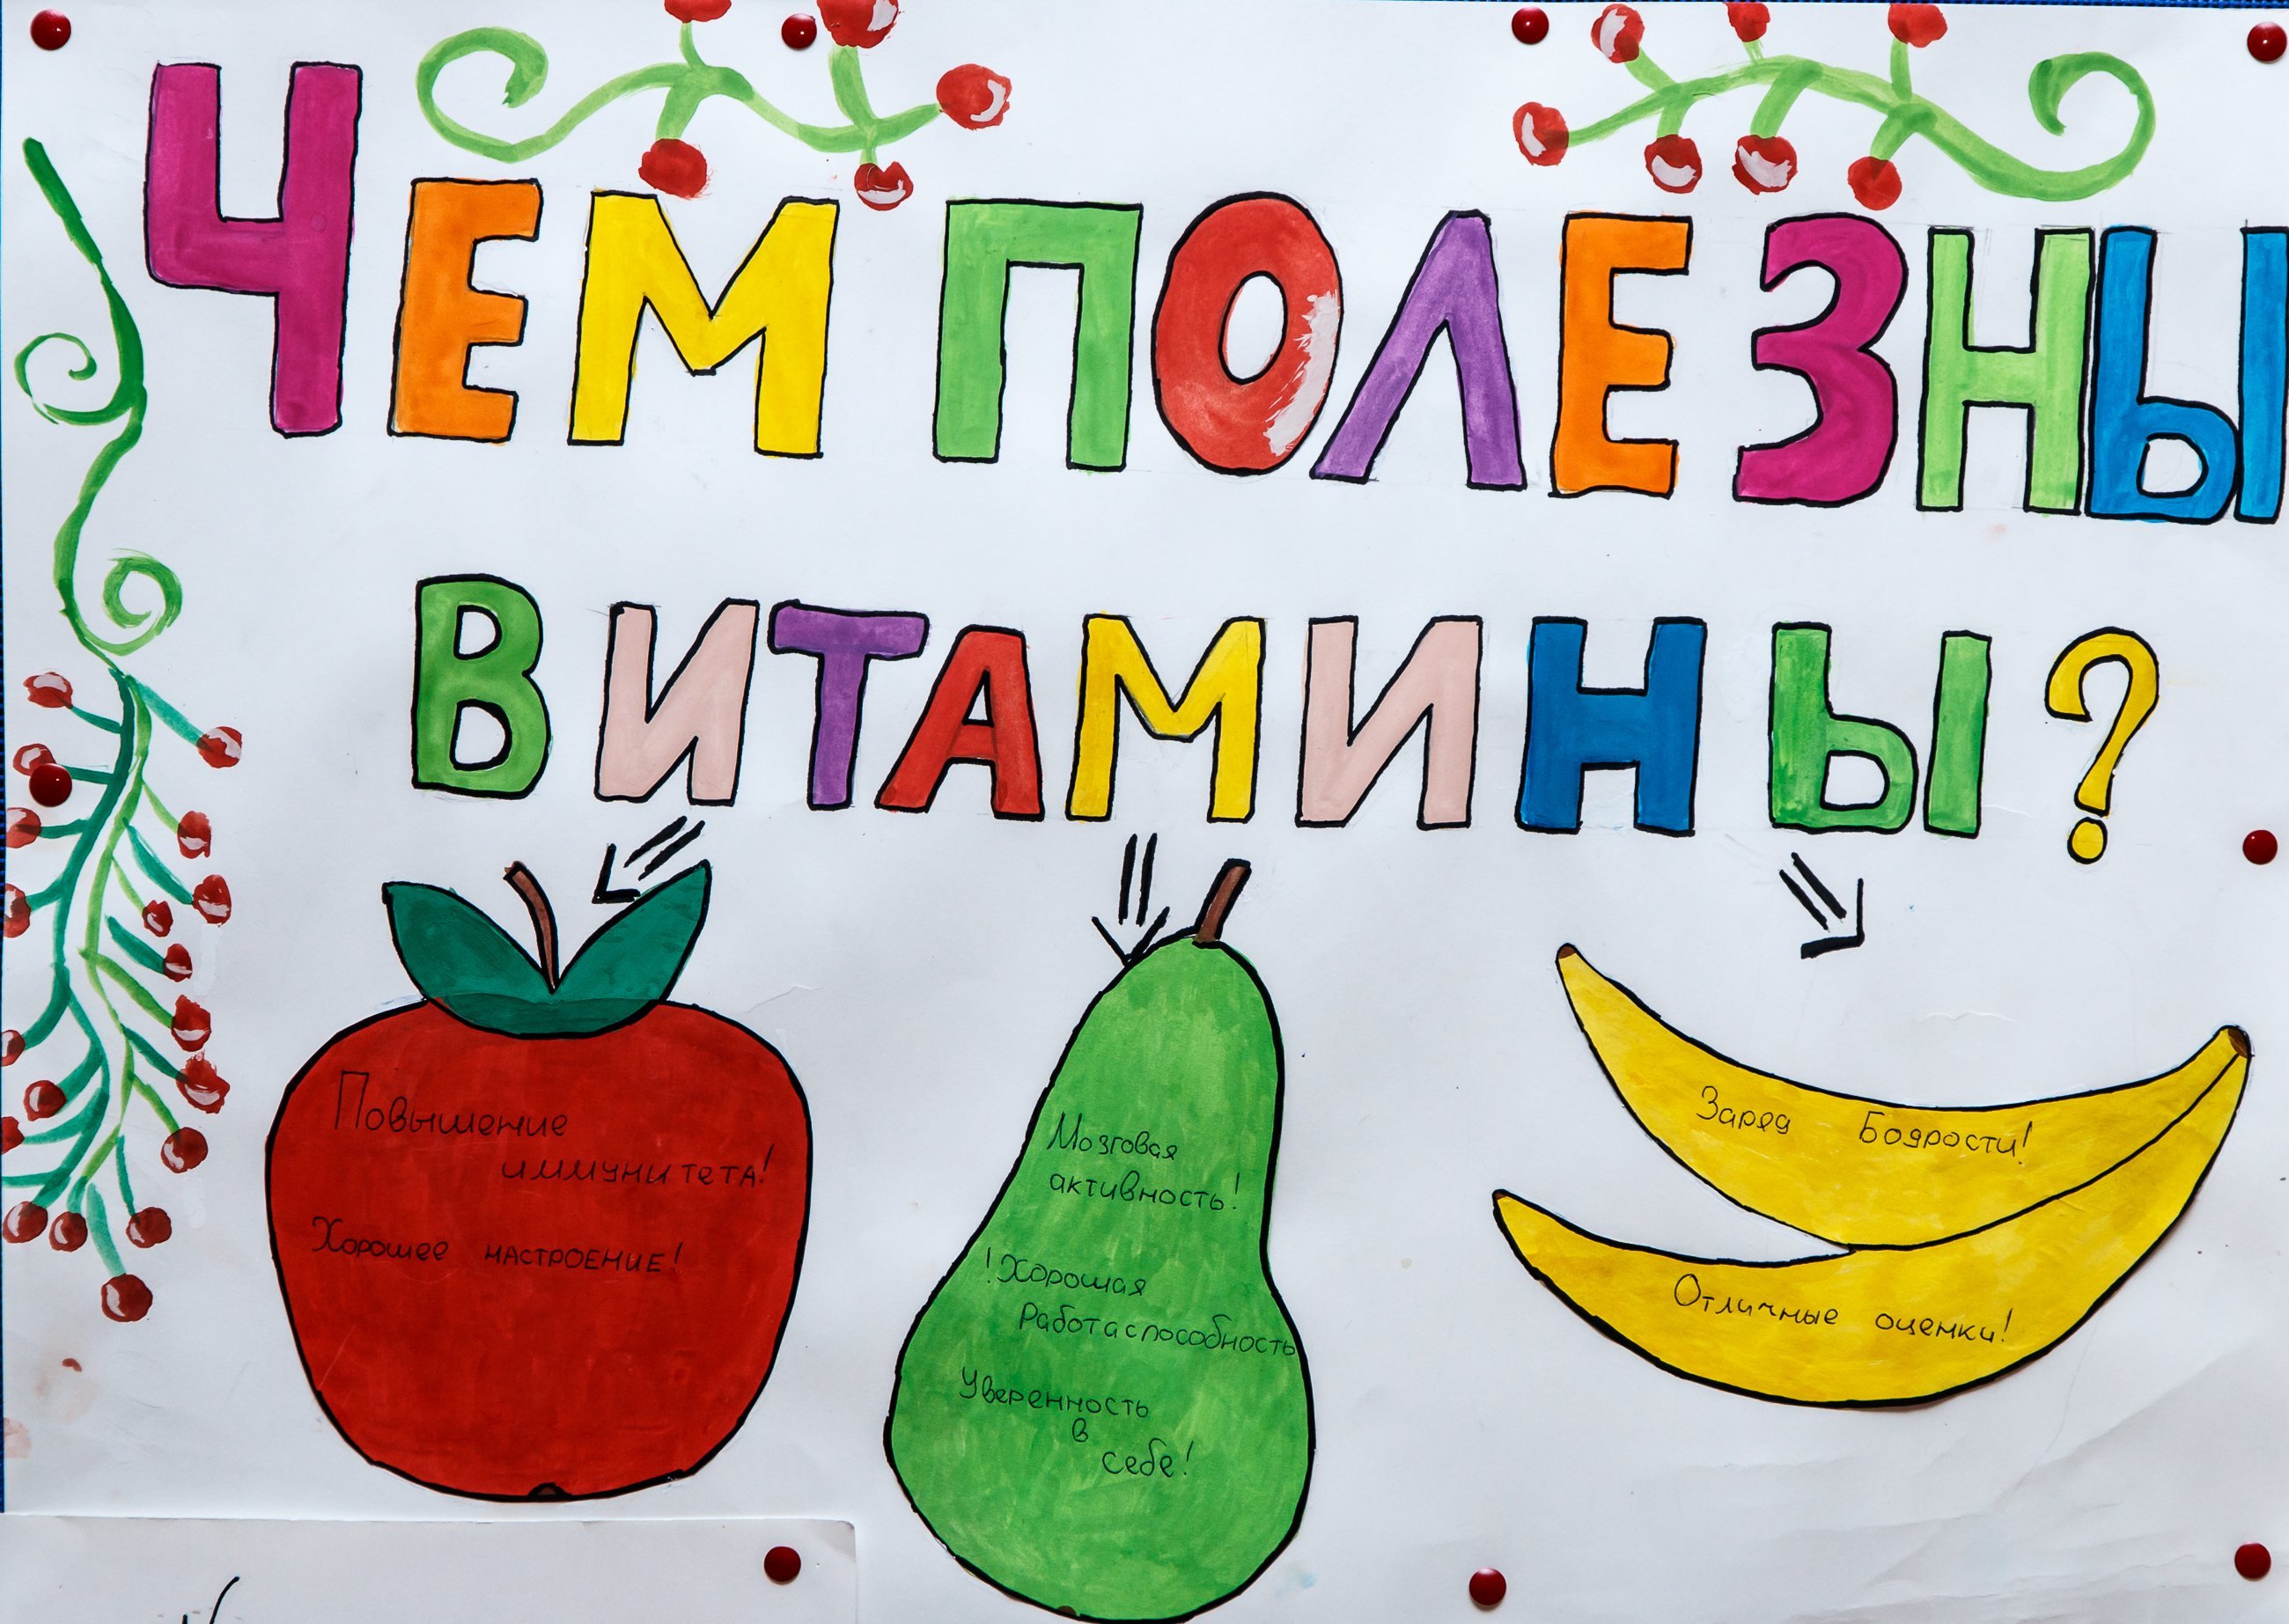 ЧЕМ ПОЛЕЗНЫ
ВИТАМИНЫ?
Повышение
иммунитета!
Хорошее настроение!
Мозговая
активность!
!Хорошая
Работаспособность
Уверенность
в
себе!
Заряд Бодрости!
Отличные оценки!